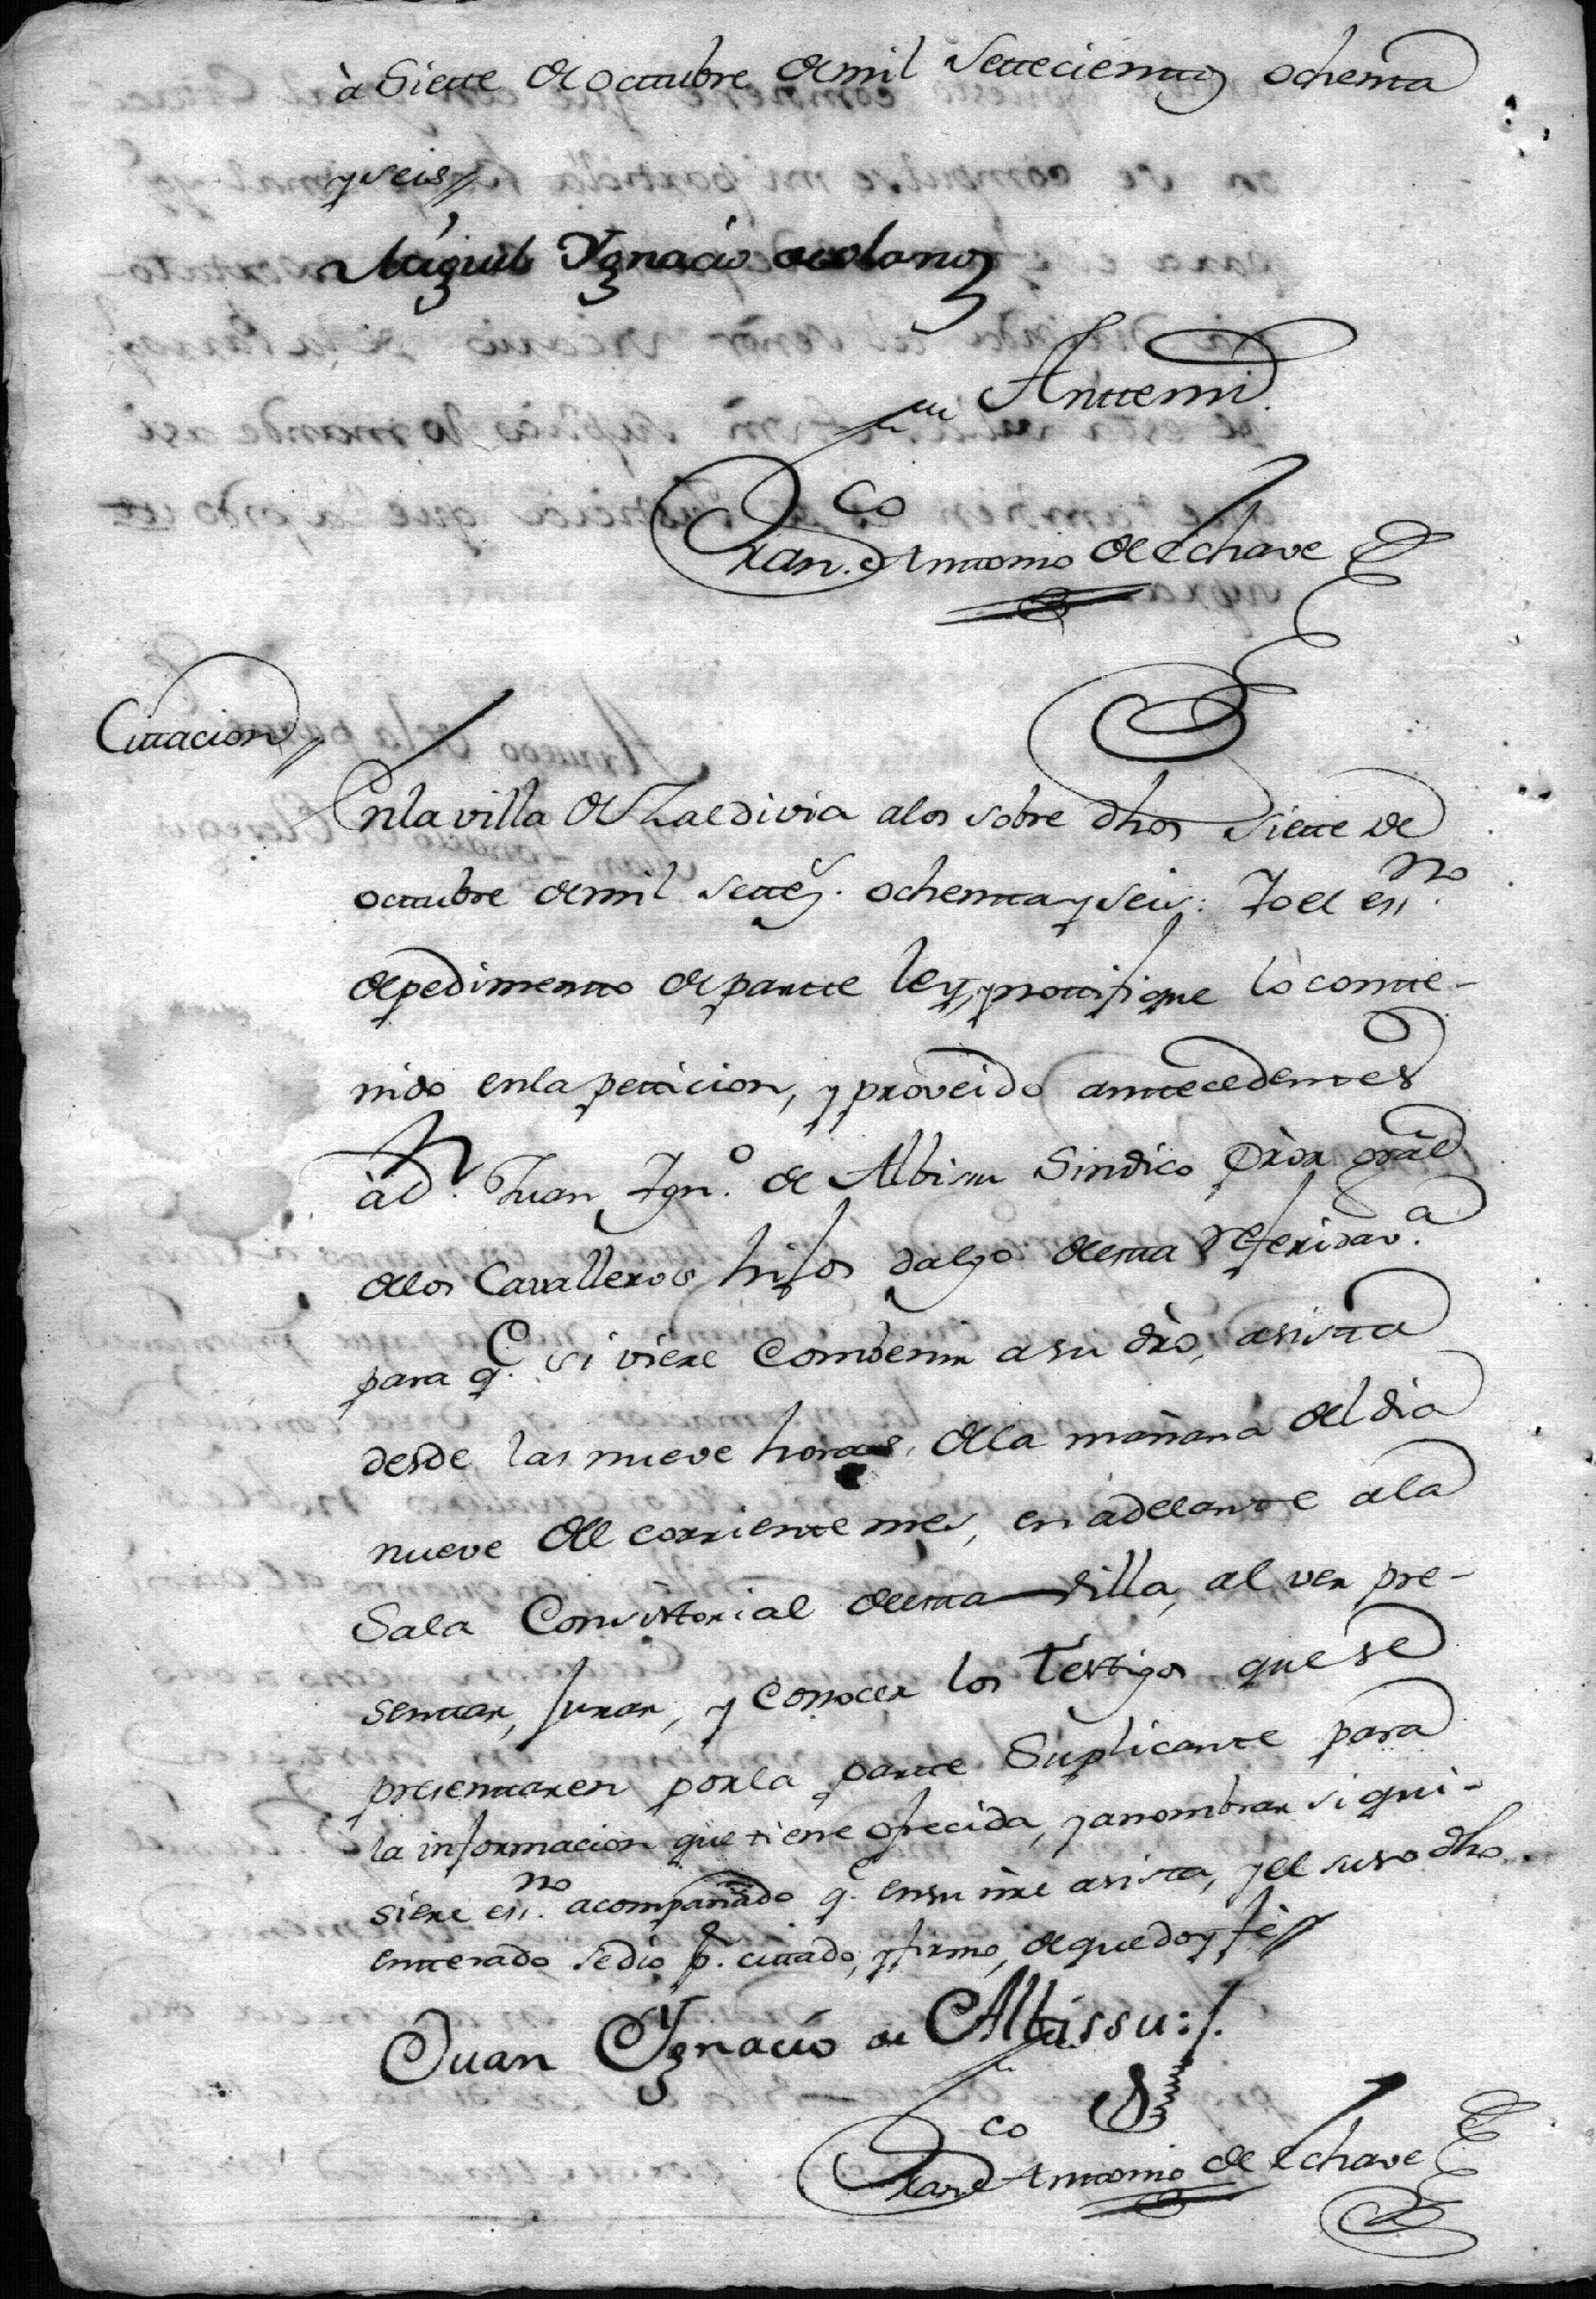 à Siette de octtubre de mil settecienttos ochentta
y seis//
Miguel Ygnacio de olano
Anttemi
Fran.co Anttonio de Echave
Cittacion//
En la villa de Zaldivia a los sobre dhos siette de
octtubre de mil settes. ochentta y seis: Yo el essno.
de pedimentto de partte ley, y nottifique lo contte-
nido en la petticion, y proveido anttecedenttes
à Dn. Juan Ign.o de Albisu Sindico Pròr gràl
de los Cavalleros hijos dalgo de estta referida v.a
para q.e si viere combenir a su dro, asistta
desde las nueve horas de la mañana del dia
nueve del corrientte mes, en adelantte a la
Sala Consistorial de estta villa, al ver pre-
senttar, jurar, y conocer los testigos que se
presenttaren por la partte Suplicantte para
la informacion que tiene ofrecida, y a nombrar si qui-
siere essno. acompañado q.e en su nre asistta, y el suso dho
entterado se dio p.r cittado, y firmo, de que doy fè//
Juan Ygnacio de Albissu:/.
Fran.co Anttonio de Echave